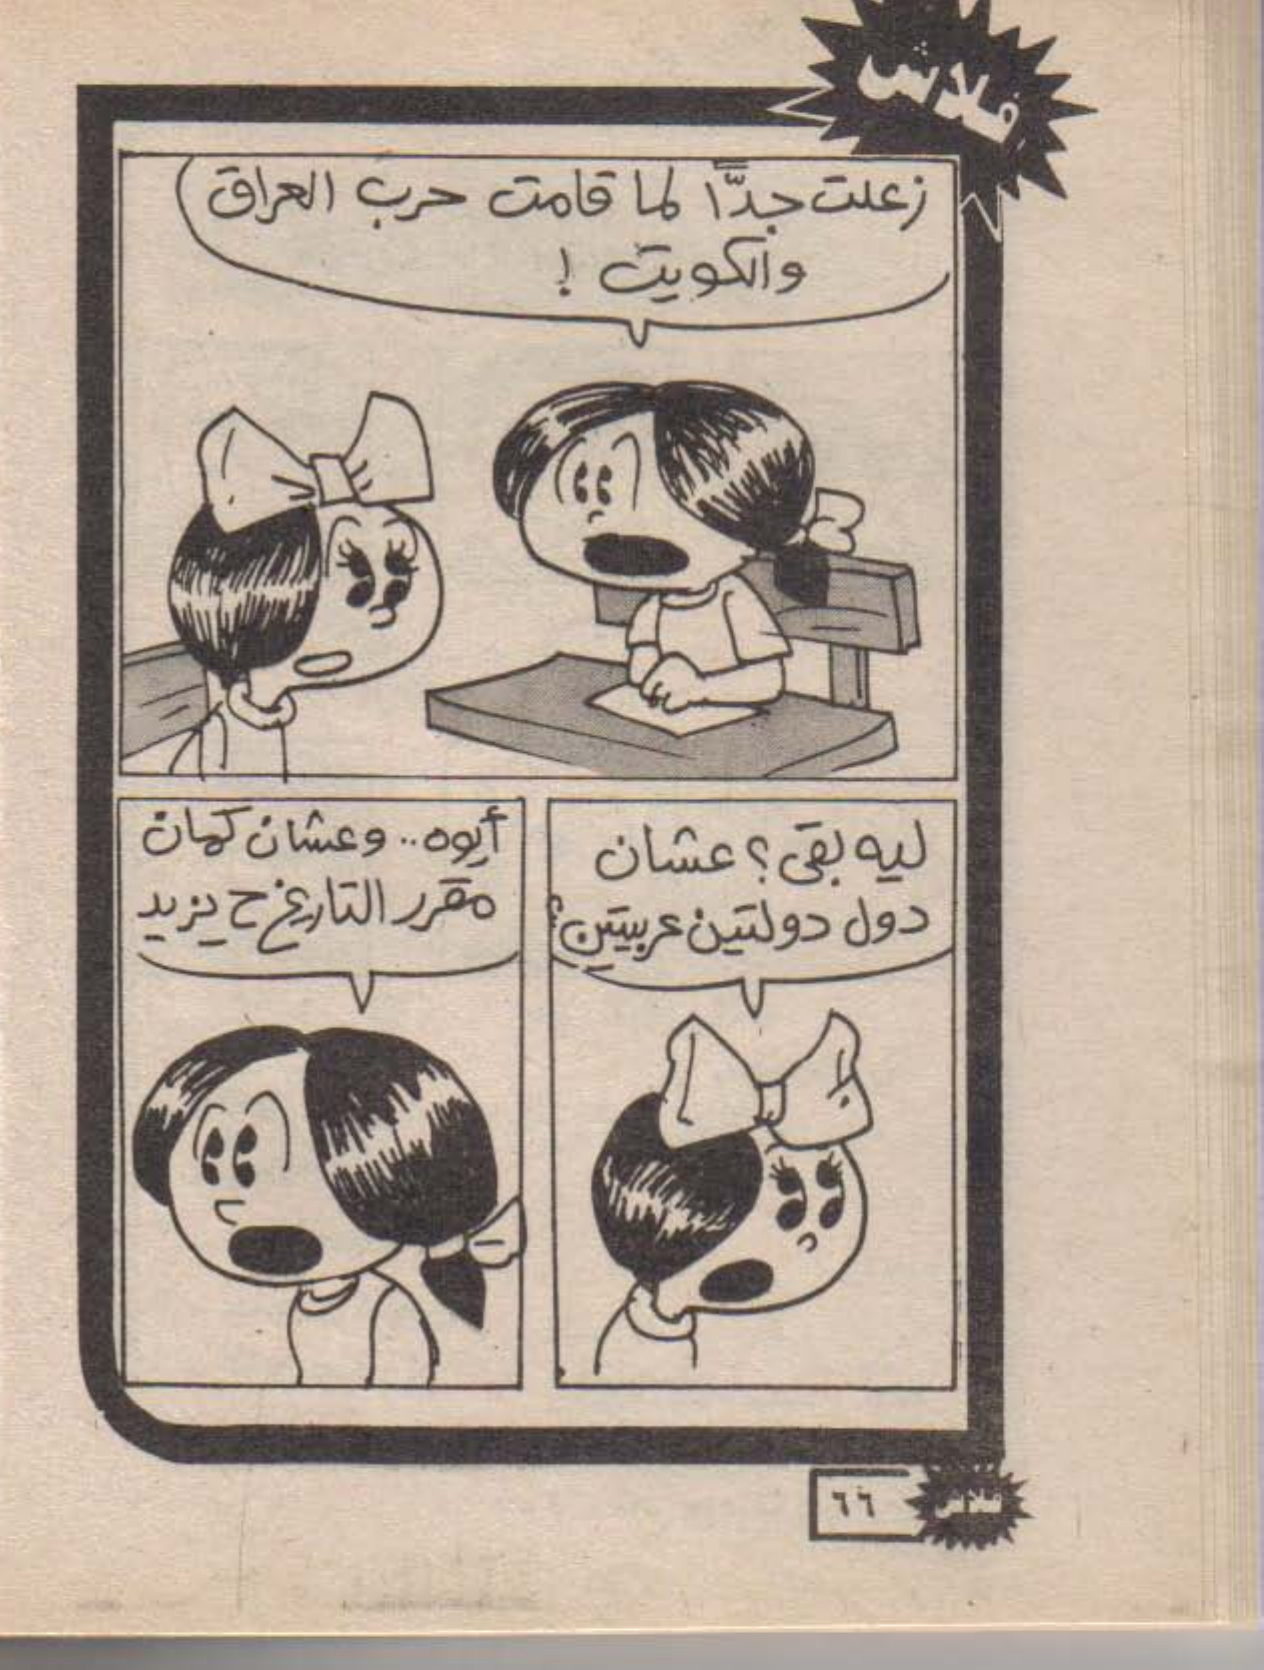 فلاش
زعلت جدًّا لما قامت حرب العراق
والكويت !
ليه بقى؟ عشان
دول دولتين عربيتين؟
أيوه.. وعشان كمان
مقرر التاريخ ح يزيد
٦٦
فلاش